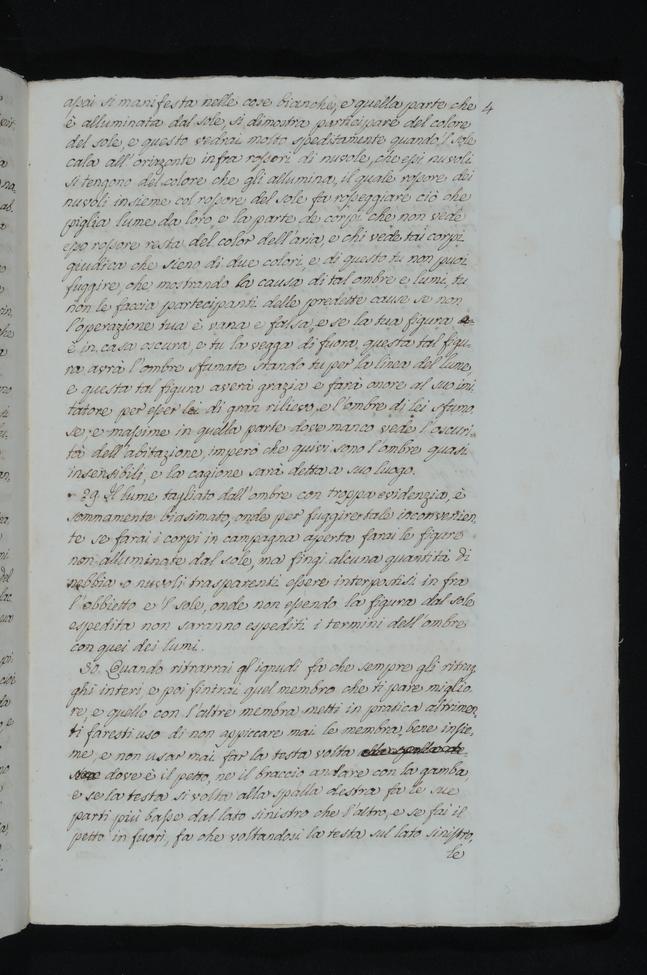 assai si manifesta nelle cose bianche, e quella parte che 4
è alluminata dal sole, si dimostra participare del colore
del sole, e questo vedrai molto speditamente quando 'l sole
cala all'orizonte infra rossori di nuvole, che essi nuvoli
si tengono del colore che gli allumina, il quale rossore dei
nuvoli insieme col rossore del sole fa rosseggiare ciò che
piglia lume da loro e la parte de corpi che non vede
esso rossore resta del color dell'aria, e chi vede tai corpi
giudica che sieno di due colori, e di questo tu non puoi
fuggire, che mostrando la causa di tal ombre e lumi, tu
non le faccia partecipanti delle predette cause se non
l'operazione tua è vana e falsa, e se la tua figura
è in casa oscura, e tu la vegga di fuora, questa tal figu-
ra avrà l'ombre sfumate stando tu per la linea del lume,
e questa tal figura averà grazia e farà onore al suo imi
tatore per esser lei di gran rilievo, e l'ombre di lei sfumo
se, e massime in quella parte dove manco vede l'oscuri-
tà dell'abitazione, imperò che quivi sono l'ombre quasi
insensibili, e la cagione sarà detta a suo luogo.
29. Il lume tagliato dall'ombre con troppa evidenzia, è
sommamente biasimato, onde per fuggire tale inconvenien
te se farai i corpi in campagna aperta farai le figure
non alluminate dal sole, ma fingi alcuna quantità di
nebbia o nuvoli trasparenti essere interpostisi in fra
l'obbietto e 'l sole, onde non essendo la figura dal sole
espedita non saranno espediti i termini dell'ombre
con quei dei lumi.
30. Quando ritrarrai gl'ignudi fa che sempre gli ritrag
ghi interi, e poi finirai quel membro che ti pare miglio
re, e quello con l'altre membra metti in pratica altrimen
ti faresti uso di non appiccare mai le membra bene insie-
me, e non usar mai far la testa volta
dove è il petto, ne il braccio andare con la gamba,
e se la testa si volta alla spalla destra fa le sue
parti più basse dal lato sinistro che l'altro, e se fai il
petto in fuori, fa che voltandosi la testa sul lato sinistro,
le